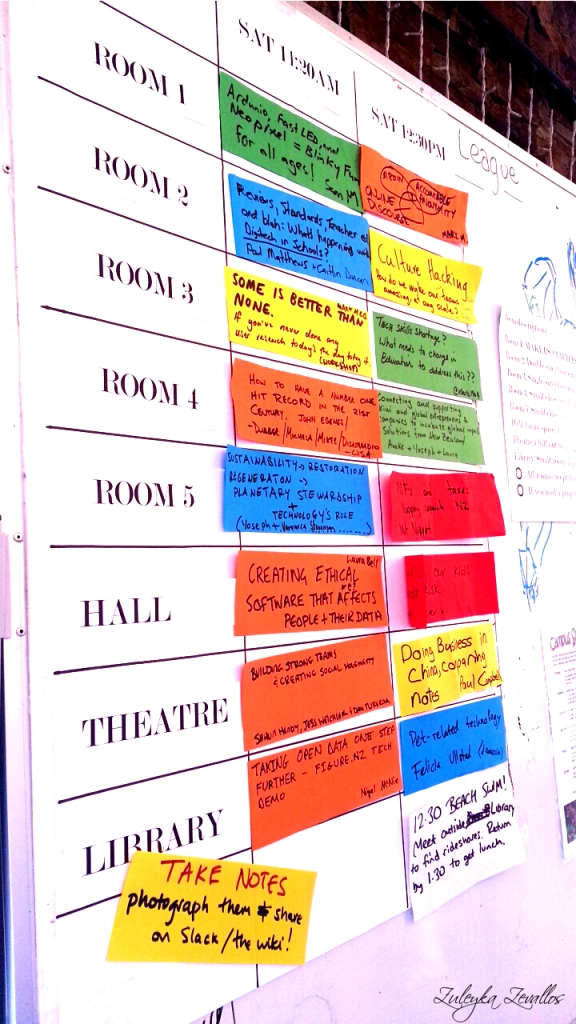 SAT 11:20AM
SAT 12:30PM
League
ROOM 1
Arduino, FastLED, and
Neopixel = Blinky Fun
for all ages!
Sean M
AGAIN
ACCOUNTABLE
ONLINE
DISCOURSE
ROOM 2
Reviews, Standards, Teacher ed
and blah: What's happening with
Digitech in Schools?
Paul Matthews + Caitlin Duncan
Culture Hacking
How do we make our teams
amazing, at any scale?
ROOM 3
SOME IS BETTER THAN
NONE.
If you've never done any
user research today's the day to try it.
(WORKSHOP)
Tech Skills Shortage?
What needs to change in
Education to address this??
ROOM 4
HOW TO HAVE A NUMBER ONE
HIT RECORD IN THE 21ST
CENTURY. JOHN EGENES/
-DUBBER/MICHELA/
-LISA
Connecting and supporting
kiwi and global entrepreneurs &
companies to incubate global impact
solutions from New Zealand
ROOM 5
SUSTAINABILITY -> RESTORATION
REGENERATION ->
PLANETARY STEWARDSHIP
+
TECHNOLOGY'S ROLE
(Yoseph +, Veronica
and taxes
NZ
HALL
Laura Bell
CREATING ETHICAL
SOFTWARE THAT AFFECTS
PEOPLE + THEIR DATA
our kids
risk
THEATRE
BUILDING STRONG TEAMS
& CREATING SOCIAL MOVEMENTS
Doing Business in
China, comparing
notes
Paul Campbell
LIBRARY
TAKING OPEN DATA ONE STEP
FURTHER - FIGURE.NZ TECH
DEMO
Nigel McNie
Pet-related technology
Felicia
12.30 BEACH SWIM!
Meet outside Library
to find rideshares. Return
by 1.30 to get lunch.
TAKE NOTES
photograph them & share
on Slack/the wiki!
Zuleyka Zevallos